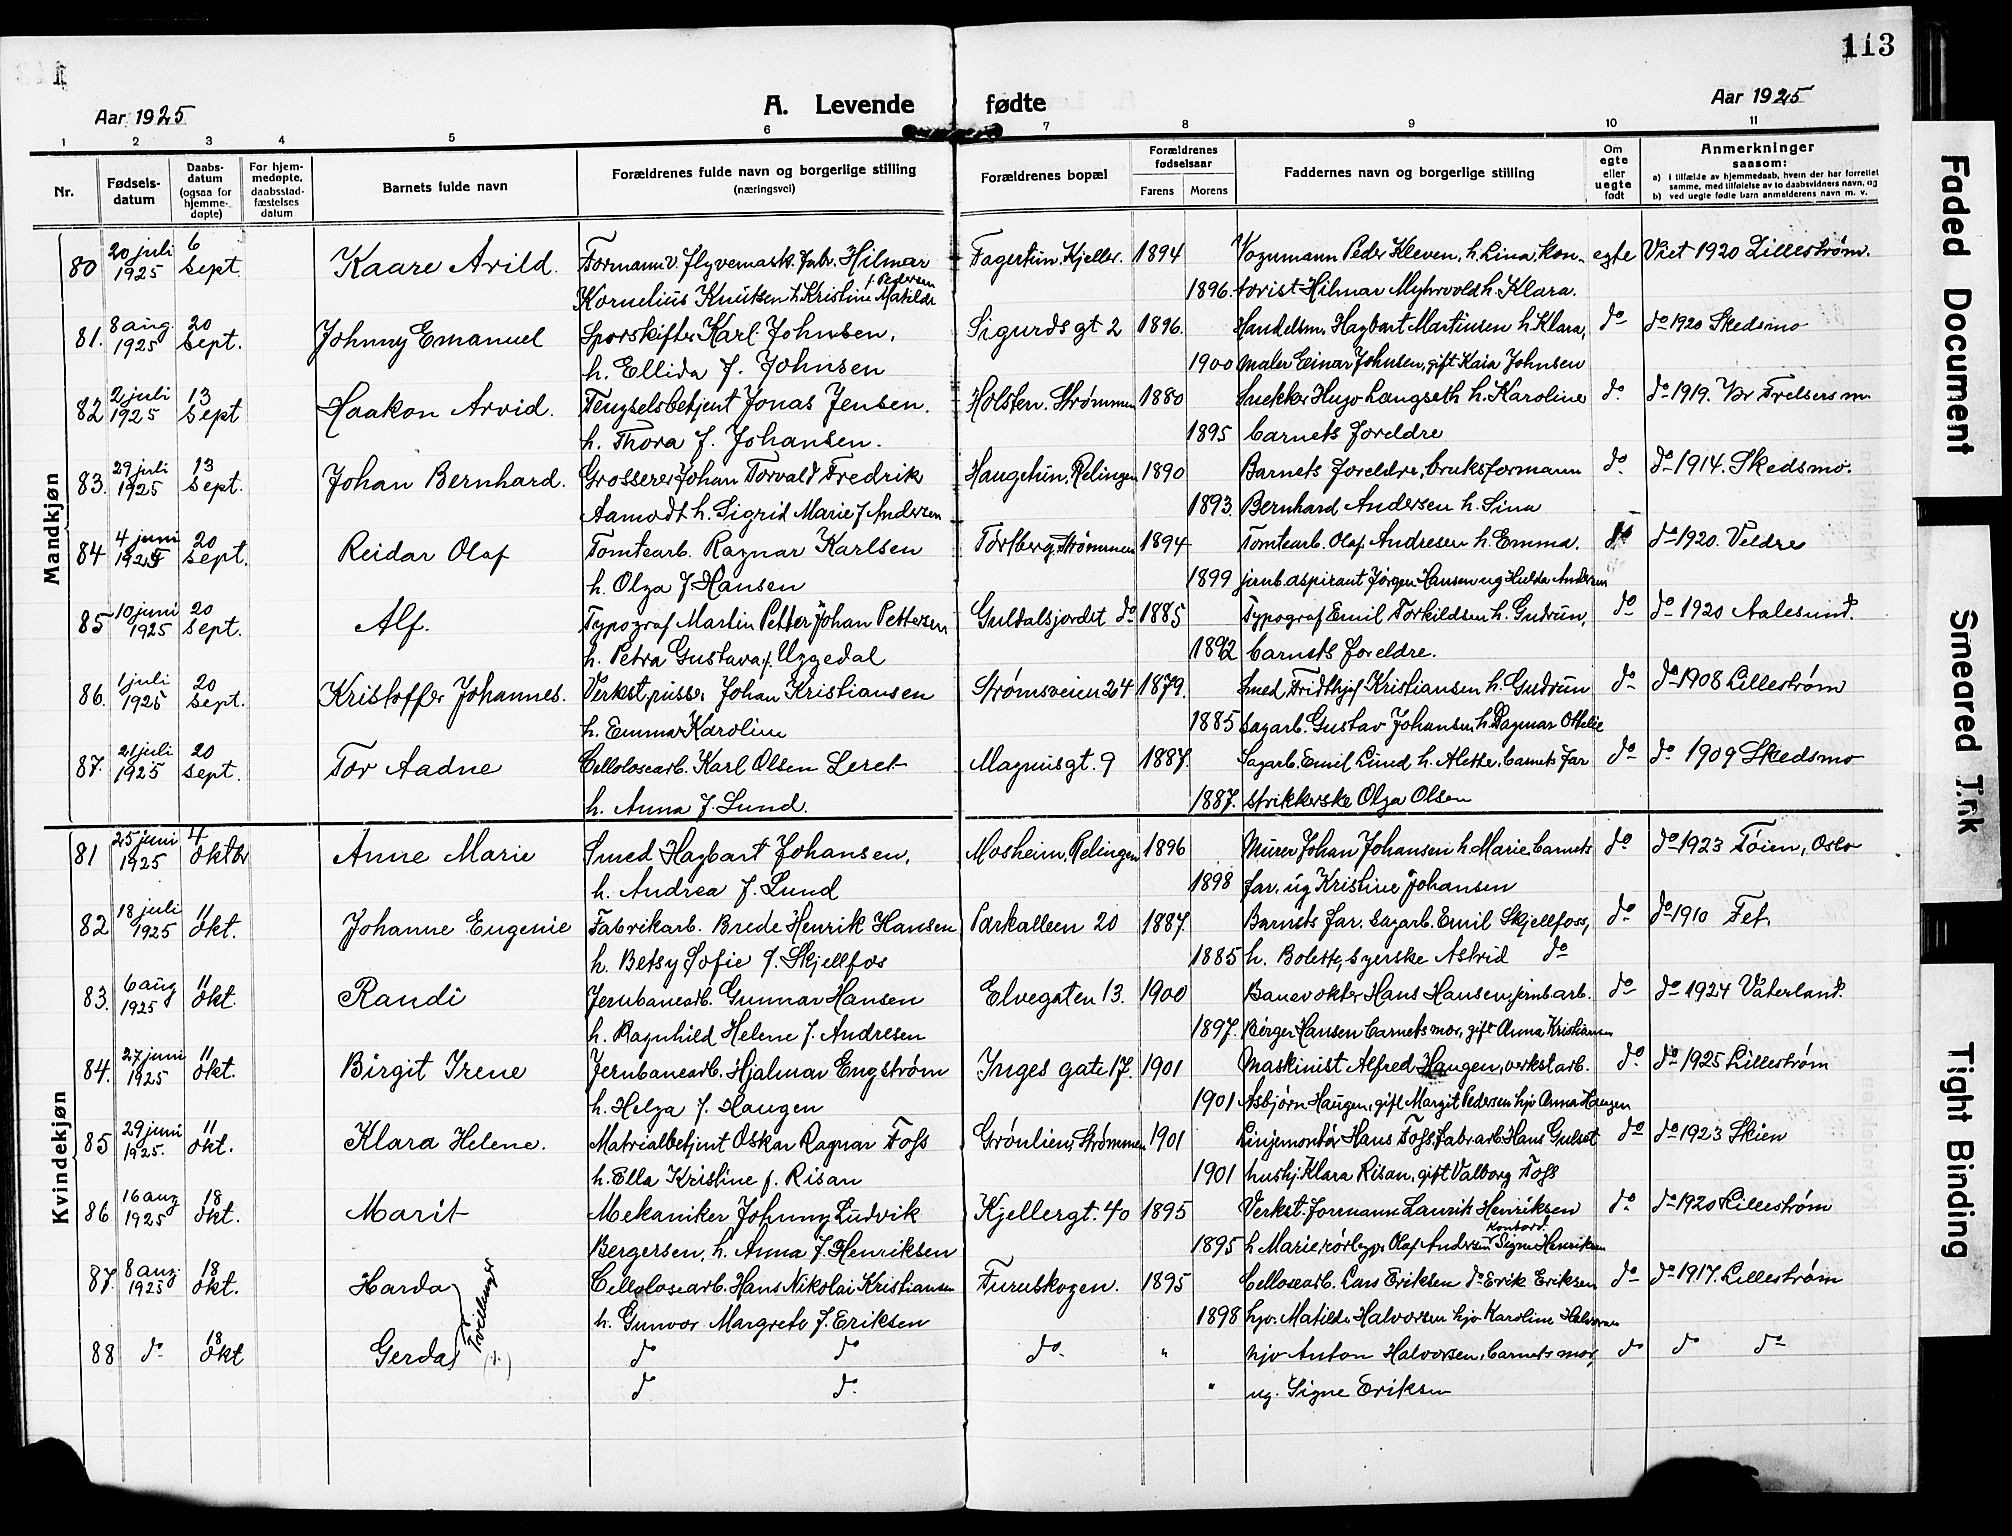 113
Aar 1925
A. Levende fødte
Aar 1925
1 2 3 4 5 6 7 8 9 10 11
Nr.
Fødsels-datum
Daabs-datum (ogsaa for hjemme-døpte)
For hjem-medøpte, daabsstad-fæstelses datum
Barnets fulde navn
Forældrenes fulde navn og borgerlige stilling (næringsvei)
Forældrenes bopæl
Forældrenes fødselsaar
Farens Morens
Faddernes navn og borgerlige stilling
Om egte eller uegte født
Anmerkninger
saasom:
a) i tilfælde av hjemmedaab, hvem der har forrettet samme, med tilføielse av to daabsvidners navn, og
b) ved uegte fødte barn anmelderens navn m. v.
Mandkjøn
80 20 juli 1925 6 Sept. Kaare Arild. Formann v flyvemask. fabr. Hilmar Fagertun. Kjeller. 1894 Vognmann Peder Kleven, h. Lina, kon- egte Viet 1920 Lillestrøm.
Kornelius Knutsen h. Kristine Matilde f. Pedersen 1896. torist Hilmar Myhrvold h. Klara.
81. 8 aug. 1925 20 Sept. Johnny Emanuel Sporskifter Karl Johnsen, Sigurds gt 2 1896. Handelsm. Hagbart Martinsen h. Klara, do do 1920 Skedsmo
h. Ellida f. Johnsen 1900 maler Einar Johnsen, gift Kaia Johnsen
82 2 juli 1925 13 Sept Haakon Arvid. Fengselsbetjent Jonas Jensen. Holsten. Strømmen 1880 Snekker Hugo Langseth h. Karoline do do 1919. Vår Frelsers m.
h. Thora f. Johansen. 1895 barnets foreldre
83. 29 juli 1925 13 Sept. Johan Bernhard. Grosserer Johan Torvald Fredrik Haugetun, Relingen 1890 Barnets foreldre, bruksformann do do 1914. Skedsmo.
Aamodt h. Sigrid Marie f Andersen 1893. Bernhard Andersen h. Lina
84 4 juni 1925 20 Sept. Reidar Olaf Tomtearb. Ragnar Karlsen Torberg, Strømmen 1894 Tomtearb. Olaf Andresen h. Emma. do do 1920. Veldre
h. Olga f Hansen 1899 jernb. aspirant Jørgen Hansen ug Hulda Andersen
85 10 juni 1925 20 Sept. Alf. Typograf Martin Petter Johan Pettersen Guldalsjordet do 1885 Typograf Emil Torkildsen h. Gudrun, do do 1920 Aalesund.
h. Petra Gustava f. Uggedal 1892 barnets foreldre.
86. 1 juli 1925 20 Sept. Kristoffer Johannes. Verkst. pusser Johan Kristiansen Strømsveien 24 1879. Smed Fridthjof Kristiansen h. Gudrun do do 1908 Lillestrøm
h. Emma Karoline 1885 sagarb. Gustav Johansen h. Dagmar Othelie
87. 21 juli 1925 20 Sept. Tor Aadne Cellolosearb. Karl Olsen Leret Magnusgt. 9 1887. Sagarb. Emil Lund h. Alette, barnets far do do 1909 Skedsmo
h. Anna f. Lund. 1887. strikkerske Olga Olsen
Kvindekjøn
81 25 juni 1925 4 Oktbr Anne Marie Smed Hagbart Johansen, Mosheim, Relingen 1896 Murer Johan Johansen h. Marie, barnets do do 1923 Tøien, Oslo
h. Andrea f. Lund 1898 far, ug Kristine Johansen
82 18 juli 1925 11 Okt. Johanne Eugenie Fabrikarb. Brede Henrik Hansen Parkalleen 20 1887. Barnets far, sagarb. Emil Skjellfoss, do do 1910 Fet.
h. Betsy Sofie f. Skjellfos 1885 h. Bolette, syerske Astrid do
83. 6 aug 1925 11 Okt. Randi Jernbanearb. Gunnar Hansen Elvegaten 13. 1900 Banevokter Hans Hansen, jernb arb. do do 1924 Vaterland.
h. Ragnhild Helene f. Andresen 1897. Birger Hansen barnets mor, gift Anna Kristiansen
84. 27 juni 1925 11 Okt. Birgit Irene Jernbanearb. Hjalmar Engstrøm Inges gate 17. 1901 Maskinist Alfred Haugen, verkst arb. do do 1925 Lillestrøm
h. Helga f. Haugen 1901 Asbjørn Haugen, gift Margit Pedersen hjv Anna Haugen
85 29 juni 1925. 11 Okt. Klara Helene. Matrialbetjent Oskar Ragnar Foss Grønlien, Strømmen 1901 Linjemontør Hans Foss, fabr arb. Hans Gulset do do 1923 Skien
h. Ella Kristine f. Risan 1901 hushj. Klara Risan, gift Valborg Foss
86 16 aug 1925 18 Okt. Marit Mekaniker Johnny Ludvik Kjellergt. 40 1895 Verkst. formann Laurik Henriksen do do 1920 Lillestrøm
Bergersen, h. Anna f. Henriksen 1895 h Marie, rørlegger Olaf Andersen Kontord. Signe Henriksen
87. 8 aug. 1925 18 Okt. Harda Cellolosearb. Hans Nikolai Kristiansen Furuskogen. 1895 Cellosearb. Lars Eriksen do Erik Eriksen do do 1917. Lillestrøm
h. Gunvor Margrete f. Eriksen 1898 hjv. Matilde Halvorsen hjv Karoline Halvorsen
Tvillinger
88 do 18 Okt Gerda do do do " hjv Anton Halvorsen, barnets mor, do do do
do do " ug. Signe Eriksen
Faded Document
Smeared Ink
Tight Binding